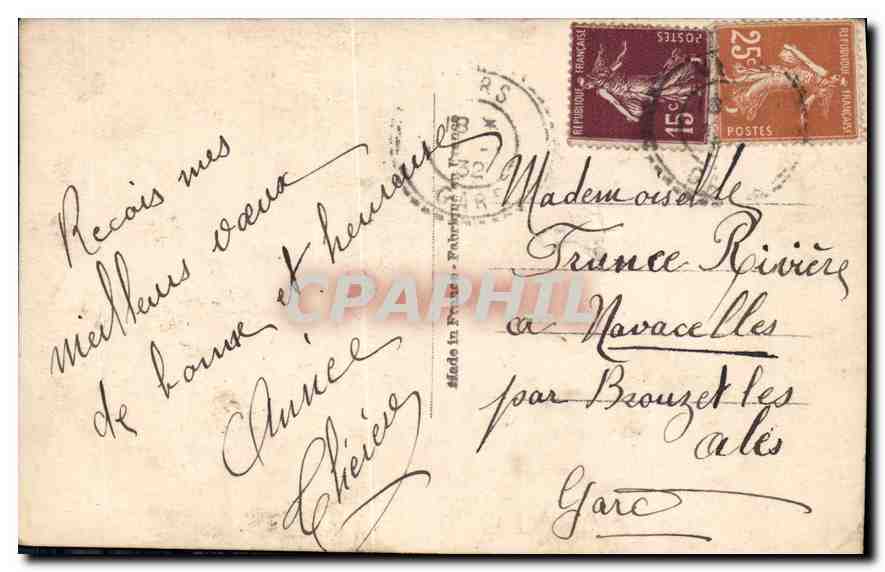 Recois mes
meilleurs vœux
de bonne et heureuse
Année
Made in France - Fabriqué en France
RS
GARD
RÉPUBLIQUE FRANÇAISE
15c
POSTES
25c
RÉPUBLIQUE FRANÇAISE
POSTES
Mademoiselle
France Rivière
a Navacelles
par Brouzet les
ales
Gard
CPAPHIL